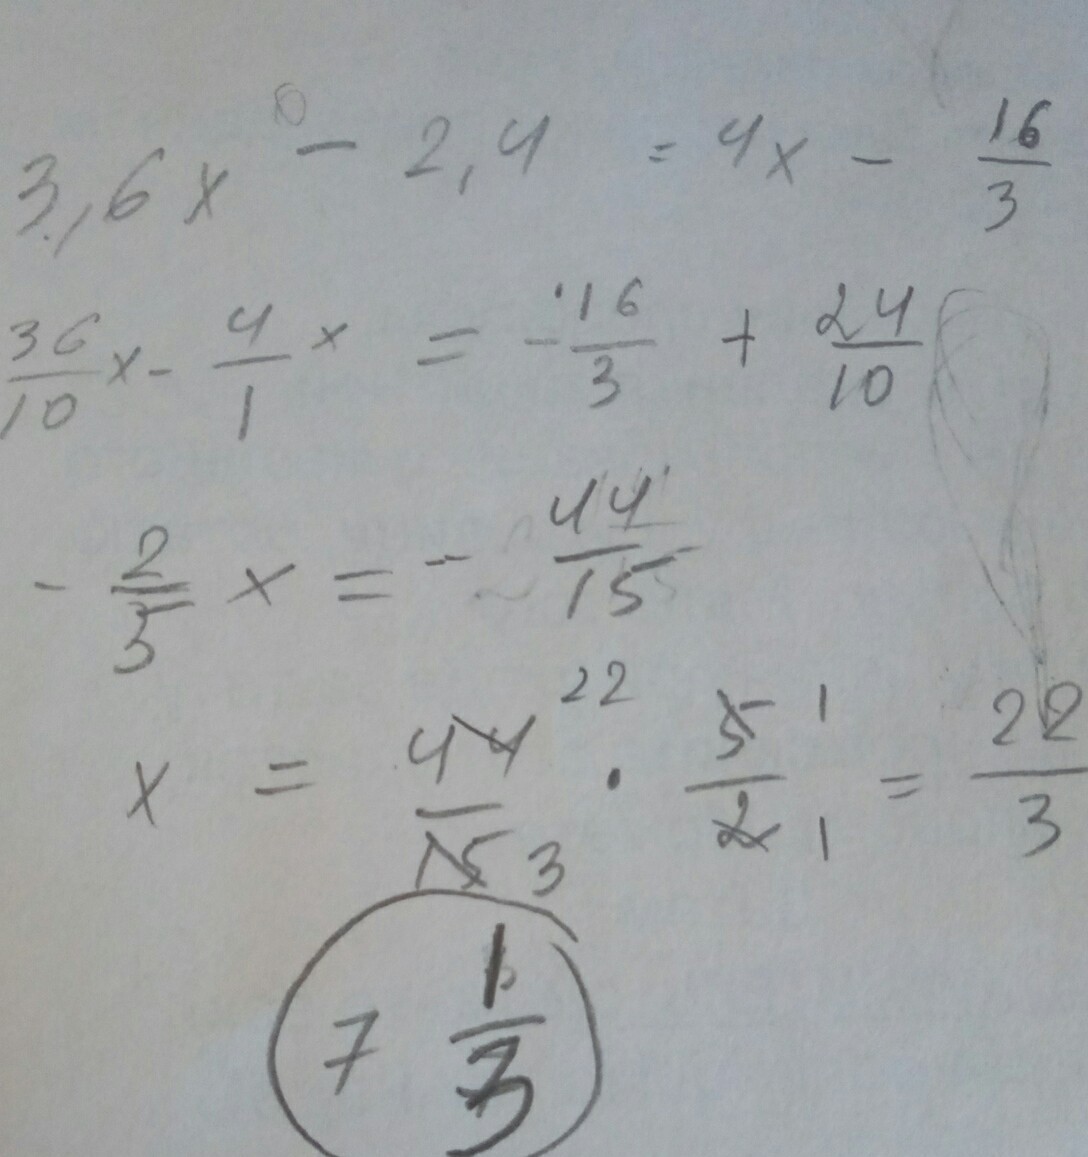 3,6x - 2,4 = 4x - 16/3
36/10 x - 4/1 x = - 16/3 + 24/10
- 2/5 x = - 44/15
x = 44/15 22 3 · 5/2 1 1 = 22/3
7 1/3